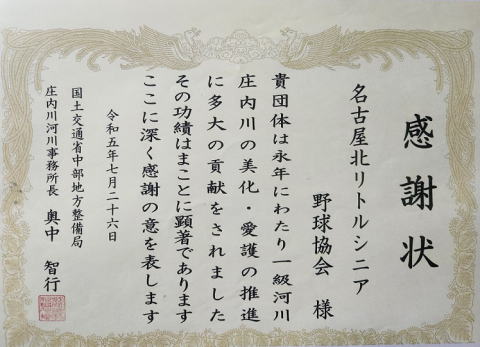 感謝状
名古屋北リトルシニア
野球協会 様
貴団体は永年にわたり一級河川
庄内川の美化・愛護の推進
に多大の貢献をされました
その功績はまことに顕著であります
ここに深く感謝の意を表します
令和五年七月二十六日
国土交通省中部地方整備局
庄内川河川事務所長 奥中 智行